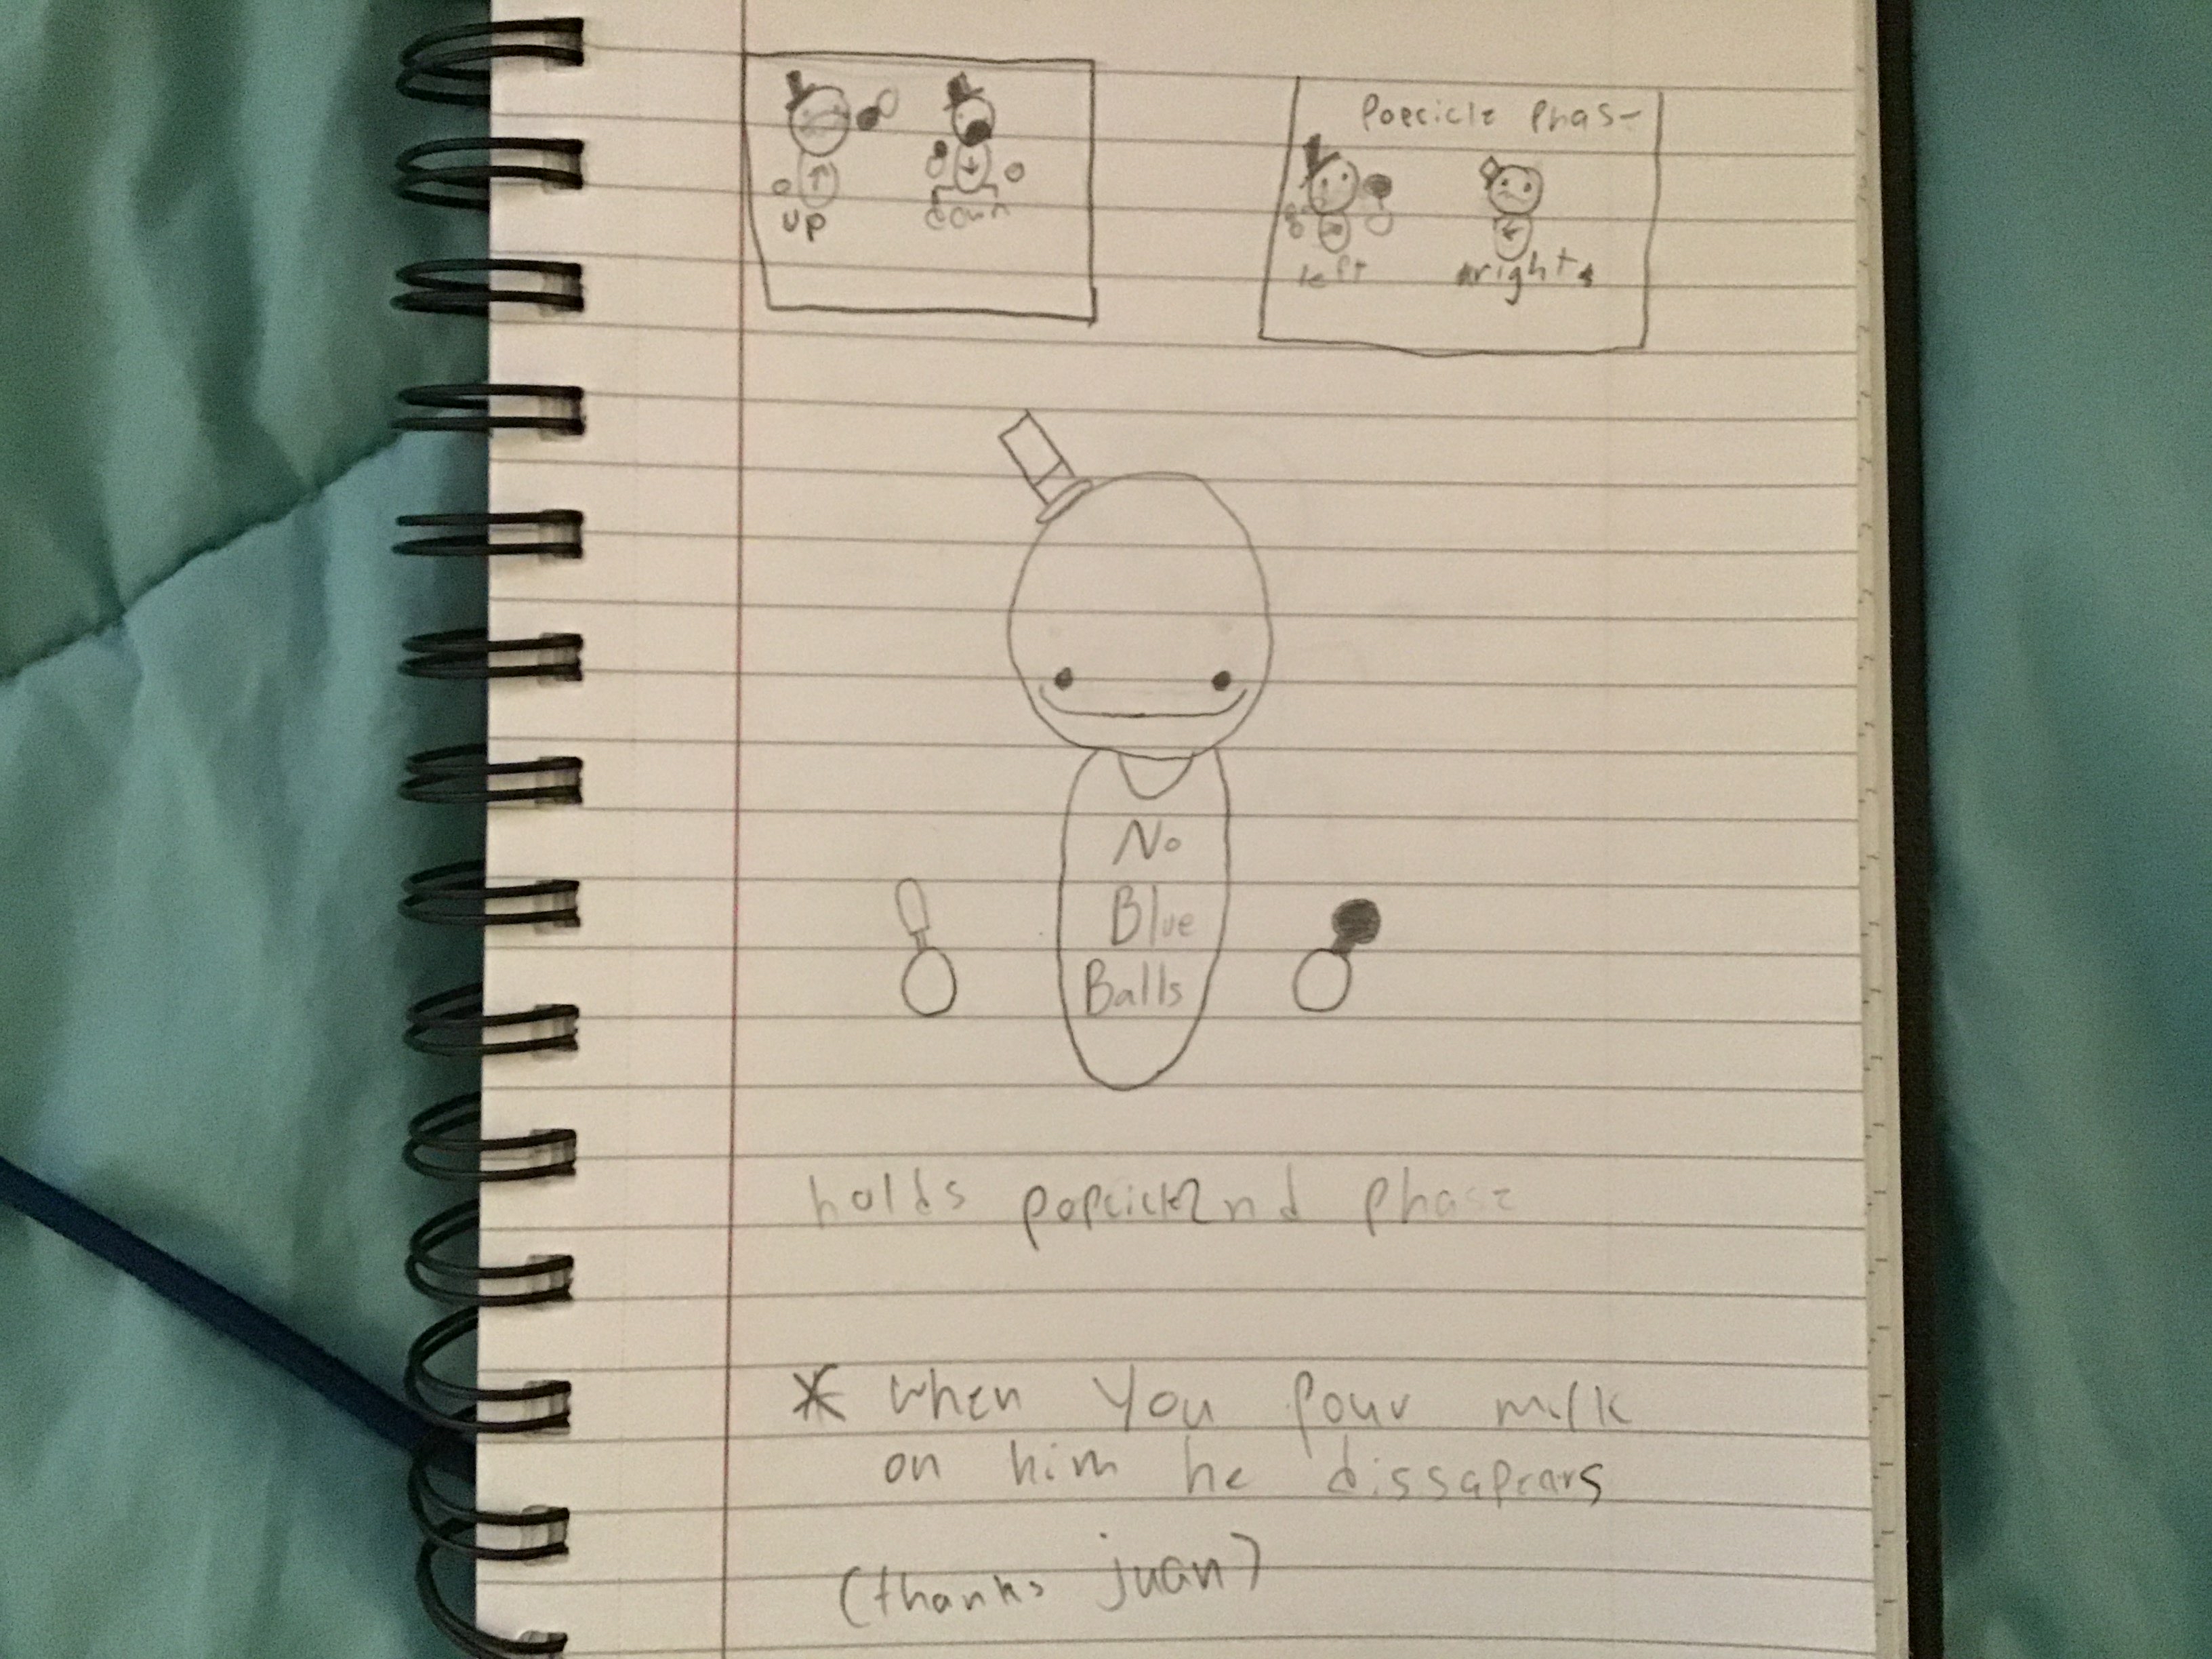 Popcicle Phas
up
down
left
right
No
Blue
Balls
holds popcicle 2nd phase
* when you pour milk
on him he dissapears
(thanks juan)